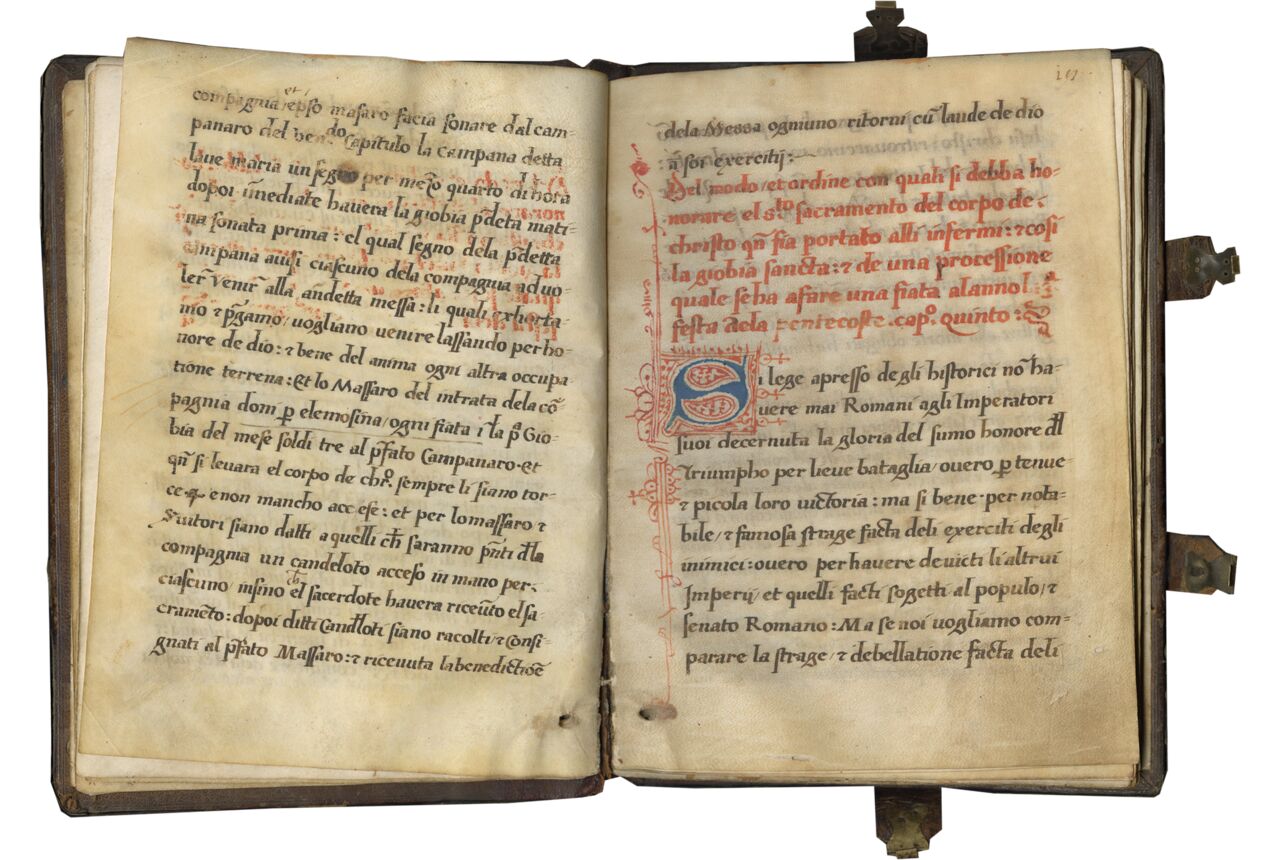 compagnia et epso masaro facia sonare dal cam-
panaro del ven.do Capitulo la campana detta
laue maria un segno per mezo quarto di hora
dopoi īmediate hauera la giobia p̄deta mati-
na sonata prima: el qual segno dela p̄detta
campana auisi ciascuno dela compagnia ad uo-
ler venir alla andetta messa: li quali exhorta-
mo ⁊ p̄gamo/ uogliano venire lassando per ho-
nore de dio: ⁊ bene del anima ogni altra occupa-
tione terrena: Et lo Massaro del intrata dela cō-
pagnia dom ꝑ elemosina/ ogni fiata ī la p.a Gio-
bia del mese soldi tre al p̄fato Campanaro. et
qn̄ si leuara el corpo de chr̄o. sempre li siano tor-
ce e non mancho accese: et per lo massaro ⁊
Seruitori siano datti a quelli ch̄ saranno p̄nti d̄la
compagnia un candeloto acceso in mano per:
ciascuno/ insino ch̄ el sacerdote hauera riceuto el sa-
cramēto: dopoi ditti Candeloti siano racolti/ ⁊ consi-
gnati al p̄fato Massaro: ⁊ riceuuta la benedictiōe
dela Messa ogniuno ritorni cū laude de dio
a soi exercitij:
Del modo/ et ordine con quali si debba ho-
norare el s.to sacramento del corpo de.
christo qn̄ sia portato alli infermi: ⁊ cosi
la giobia sancta: ⁊ de una processione
quale se ha a fare una fiata al anno l.a
festa dela pentecoste. cap.o Quinto:
Si lege apresso degli historici nō ha-
uere mai Romani agli Imperatori
suoi decernuta la gloria del sumo honore d̄l
Triumpho per lieue bataglia/ ouero ꝑ tenue-
⁊ picola loro uictoria: ma si bene per nota-
bile/ ⁊ famosa strage facta deli exerciti degli
inimici: ouero per hauere deuicti li altrui
Imperij/ et quelli facti sogetti al populo/ ⁊
senato Romano: Ma se noi uogliamo com-
parare la strage/ ⁊ debellatione facta deli